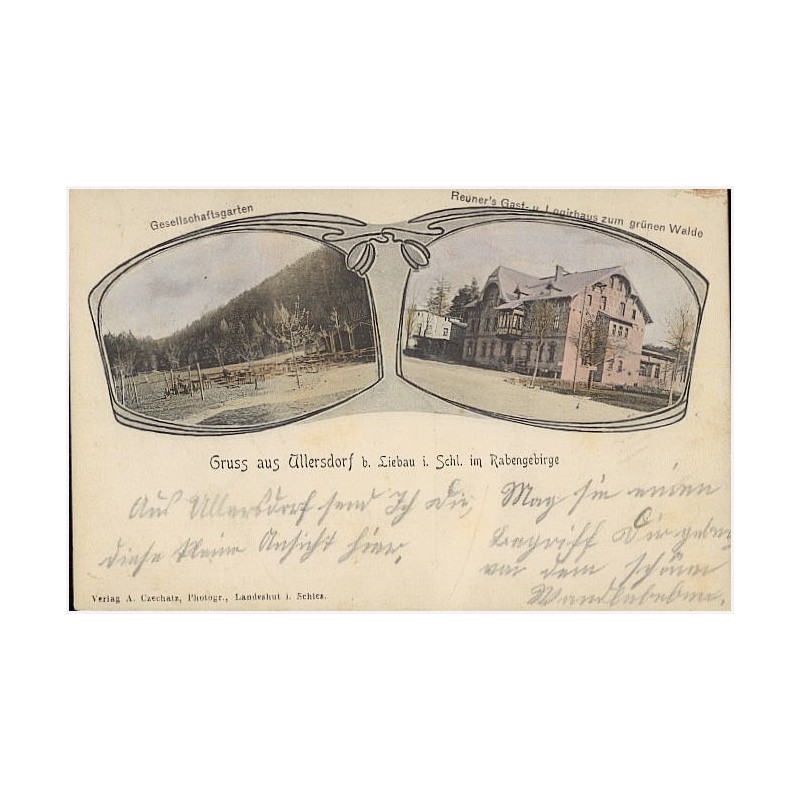 Gesellschaftsgarten
Reuner's Gast- u. Logirhaus zum grünen Walde
Gruss aus Ullersdorf b. Liebau i. Schl. im Rabengebirge
Aus Ullersdorf send Ich Dir,
diese kleine Ansicht hier,
Mag sie einen
Begriff Dir geben
von dem schönen
Verlag A. Czechatz, Photogr., Landeshut i. Schles.